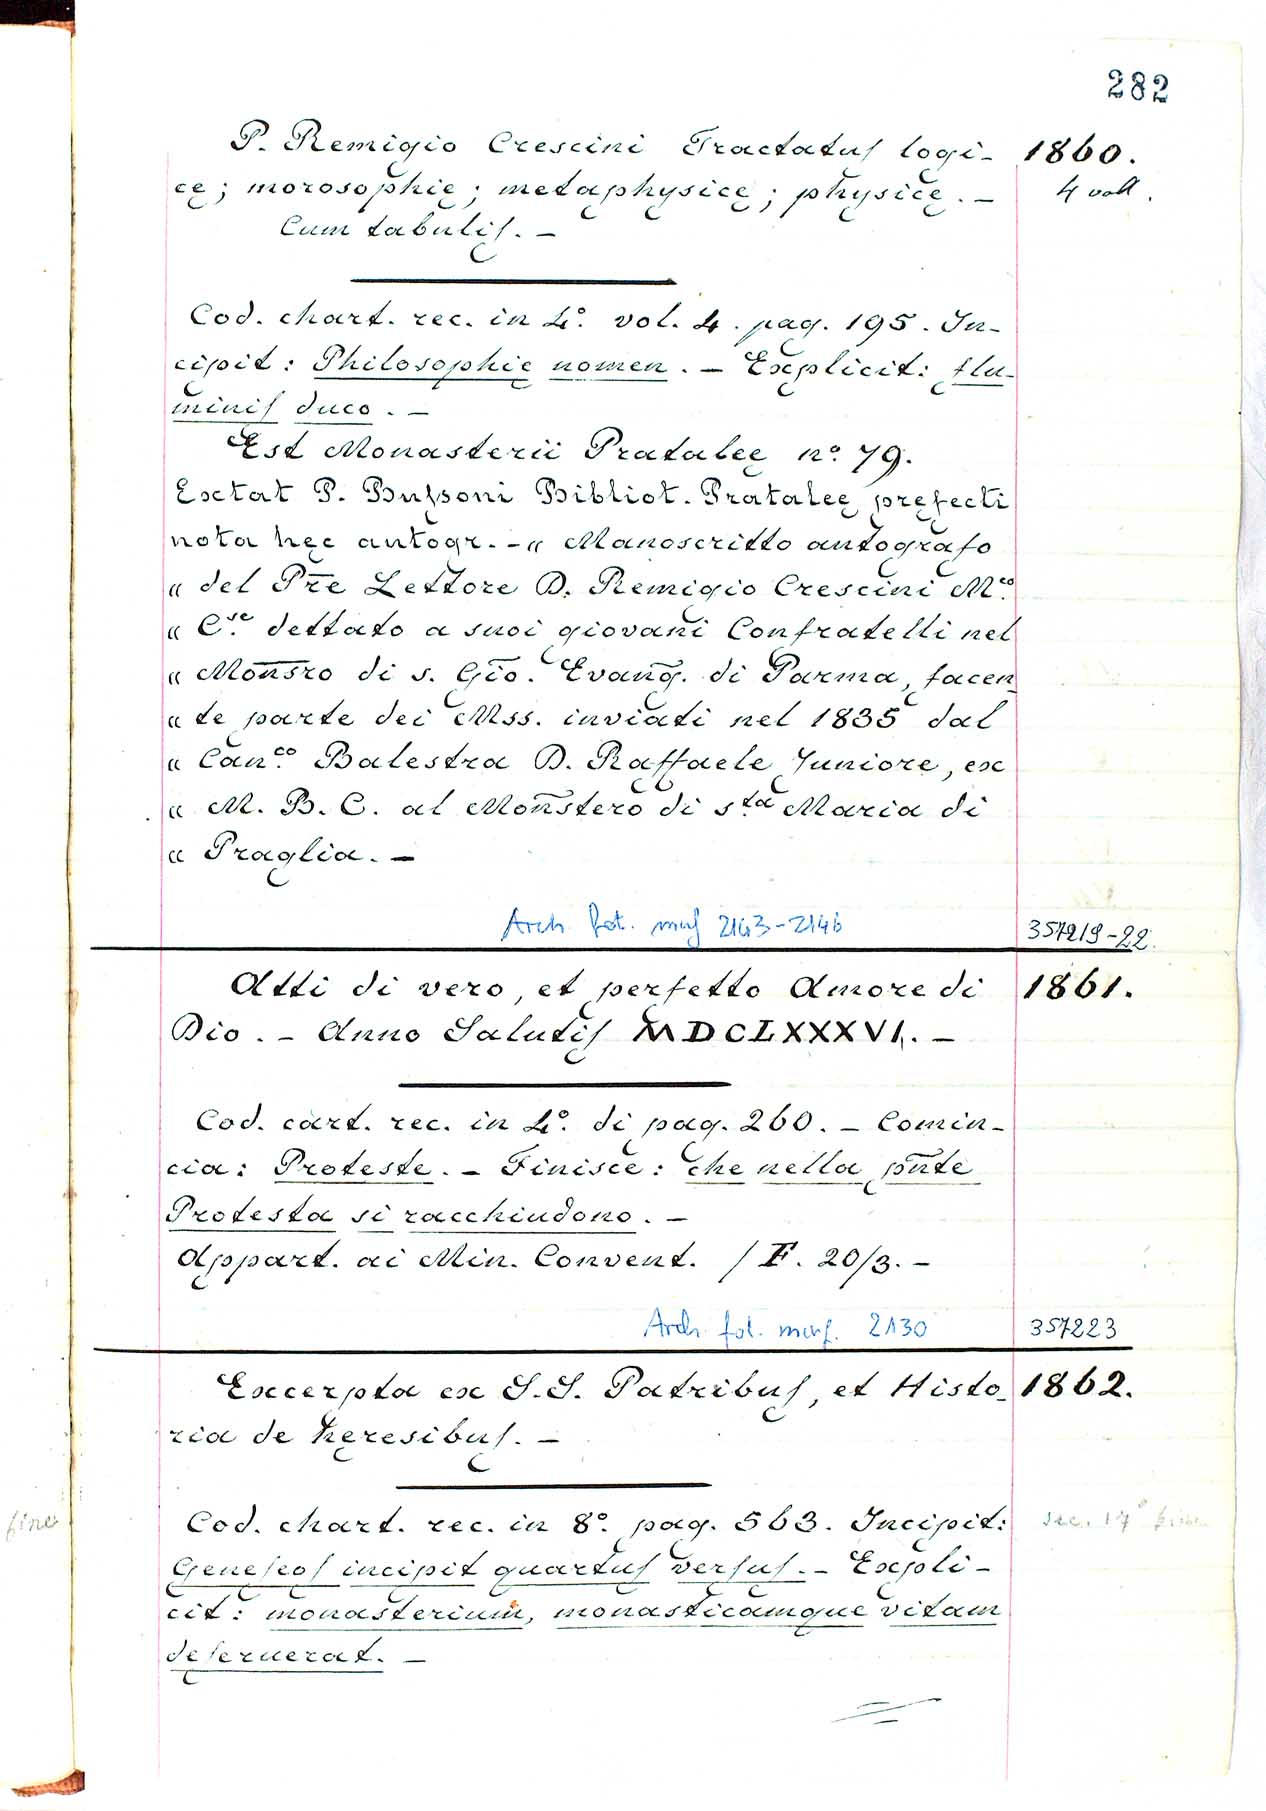 282
P. Remigio Crescini Tractatus logi- 1860.
cę; morosophię; metaphysicę; physicę. - 4 voll.
Cum tabulis. -
Cod. chart. rec. in 4.° vol. 4. pag. 195. In-
cipit: Philosophię nomen. - Explicit: flu-
minis duco. -
Est Monasterii Pratalęę n.° 79.
Extat P. Bussoni Bibliot. Pratalęę pręfecti
nota hęc autogr. - „ Manoscritto autografo
„ del Pre Lettore D. Remigio Crescini M.co
„ C.se dettato a suoi giovani Confratelli nel
„ Monsro di s. Gio. Evang. di Parma, facen-
„ te parte dei Mss. inviati nel 1835 dal
„ Can.co Balestra D. Raffaele Juniore, ex
„ M. B. C. al Monstero di s.ta Maria di
„ Praglia. -
Arch. fot. marc. 2143-2146 357219-22.
Atti di vero, et perfetto Amore di 1861.
Dio. - Anno Salutis MDCLXXXVI. -
Cod. cart. rec. in 4.° di pag. 260. - Comin-
cia: Proteste. - Finisce: che nella pnte
Protesta si racchiudono. -
Appart. ai Min. Convent. / F. 20/3. -
Arch. fot. marc. 2130 357223
Excerpta ex S.S. Patribus, et Histo- 1862.
ria de hęresibus. -
Cod. chart. rec. in 8.° pag. 563. Incipit: sec. 17° fine
Geneseos incipit quartus versus. - Expli-
cit: monasterium, monasticamque vitam
deseruerat. -
fine